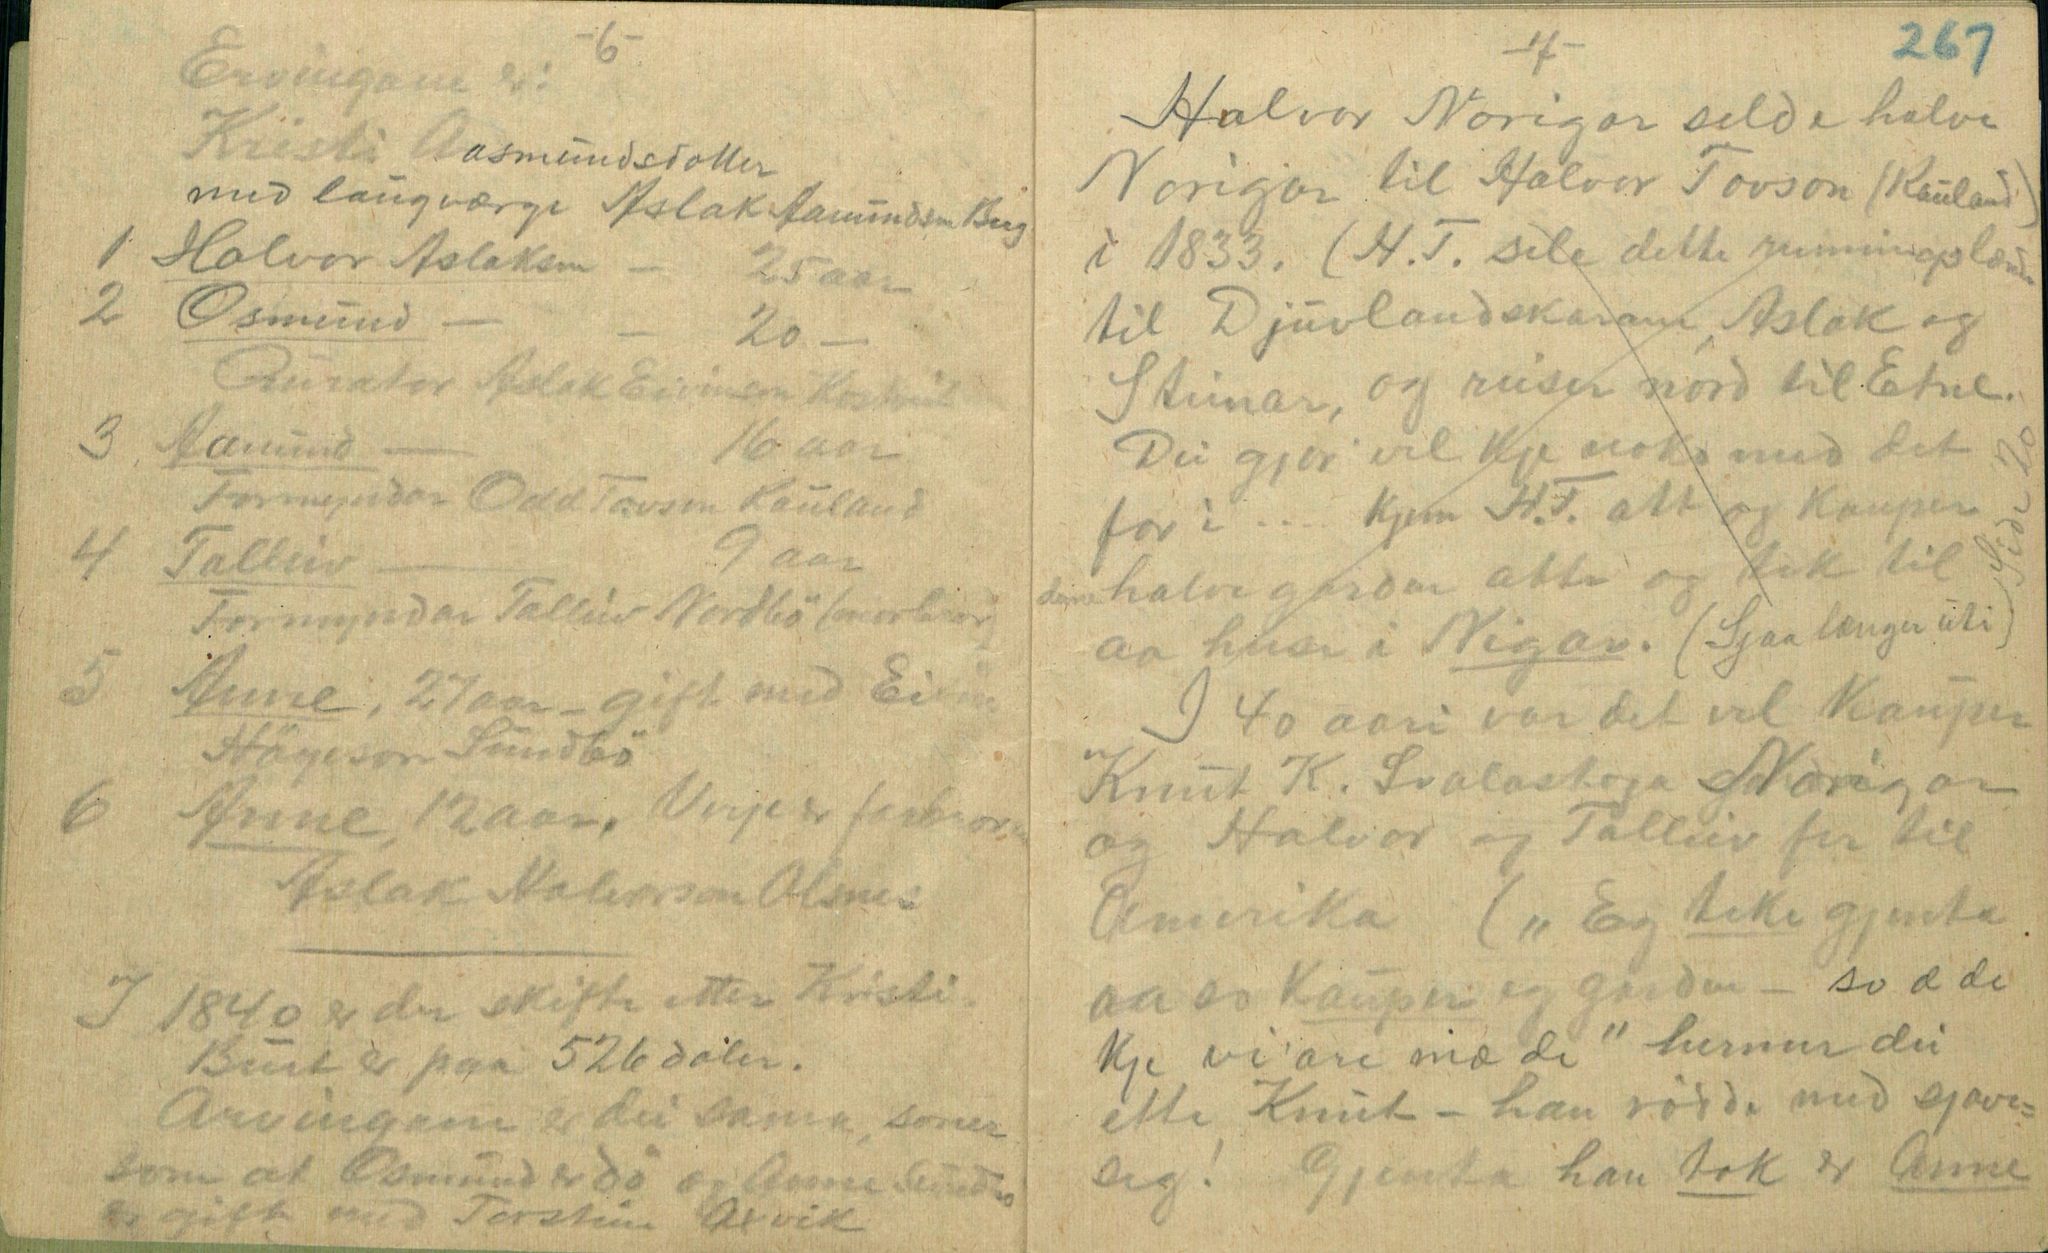 -6-
Ervingane er:
Kristi Aasmundsdotter
med laugværge Aslak Aamundsen Berg
1 Halvor Aslaksen - 25 aar
2 Osmund - - 20 -
Curator Aslak Eivinsen
3 Aamund - 16 aar
Formyndar Odd Tovsen Kauland
4 Talleiv - 9 aar
Formyndar Talleiv Nordbö (morbror)
5 Anne, 27 aar - gift med Eivin
Högeson Sundbö
6 Anne, 12 aar. Verje er farbroren
Aslak Halvorson Olsnes
I 1840 er der skifte etter Kristi.
Buet er paa 526 daler.
Arvingane er dei sama, soner
som at Osmund er dö og Anne Sundbö
er gift med Torstein Arvik
-7-
267
Halvor Norigar selde halve
Norigar til Halvor Tovson (Kauland)
i 1833. (H.T. sele dette rumningslændu
til Djuvlandskarane, Aslak og
Steinar, og reiser nord til Etne.
Dei gjer vel kje noko med det
for i .... kjem H.T. att og kauper
denne halve garden atte og tek til
aa huse i Nigar. (Sjaa længer uti)
Side 20
I 40 aari var det vel kauper
Knut K. Svalastoga Norigar
og Halvor og Talleiv fer til
Amerika („Eg teke gjenta
aa so kauper eg garden - so æ de
kje vi'are mæ de" hermer dei
ette Knut - han rödde med sjave=
seg! Gjenta han tok er Anne